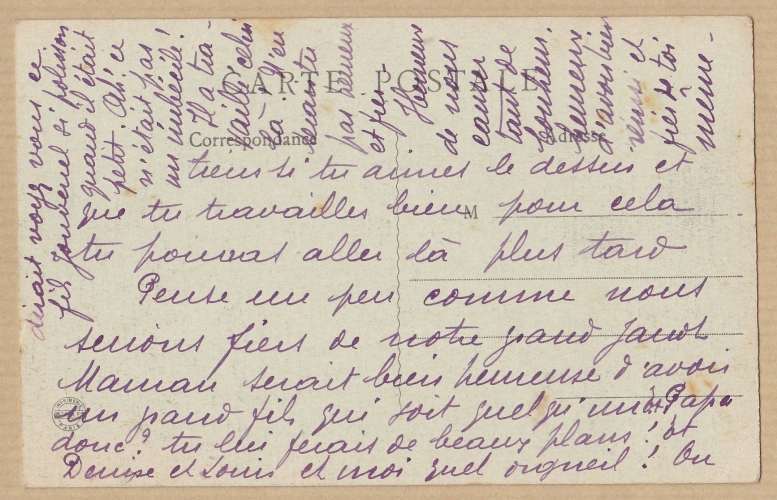 CARTE POSTALE
Correspondance
Adresse
M
tiens si tu aimes le dessin et
que tu travailles bien pour cela
tu pourras aller là plus tard
Pense un peu comme nous
serions fiers de notre grand Jacot
Maman serait bien heureuse d'avoir
un grand fils qui soit quelqu'un et Papa
donc? tu lui ferais de beaux plans! et
Denise et Louis et moi quel orgueil! On
dirait voyez vous ce
fils Gouvenel si polisson
quand il était
petit. Oh! ce
n'était pas
un imbécile!
Il a tra-
vaillé celui
là! J'en
suis
pas heureux
et fier
Heureux
de nous
causer
tant de
bonheur,
heureux
d'avoir bien
réussi et
fier de toi
même-